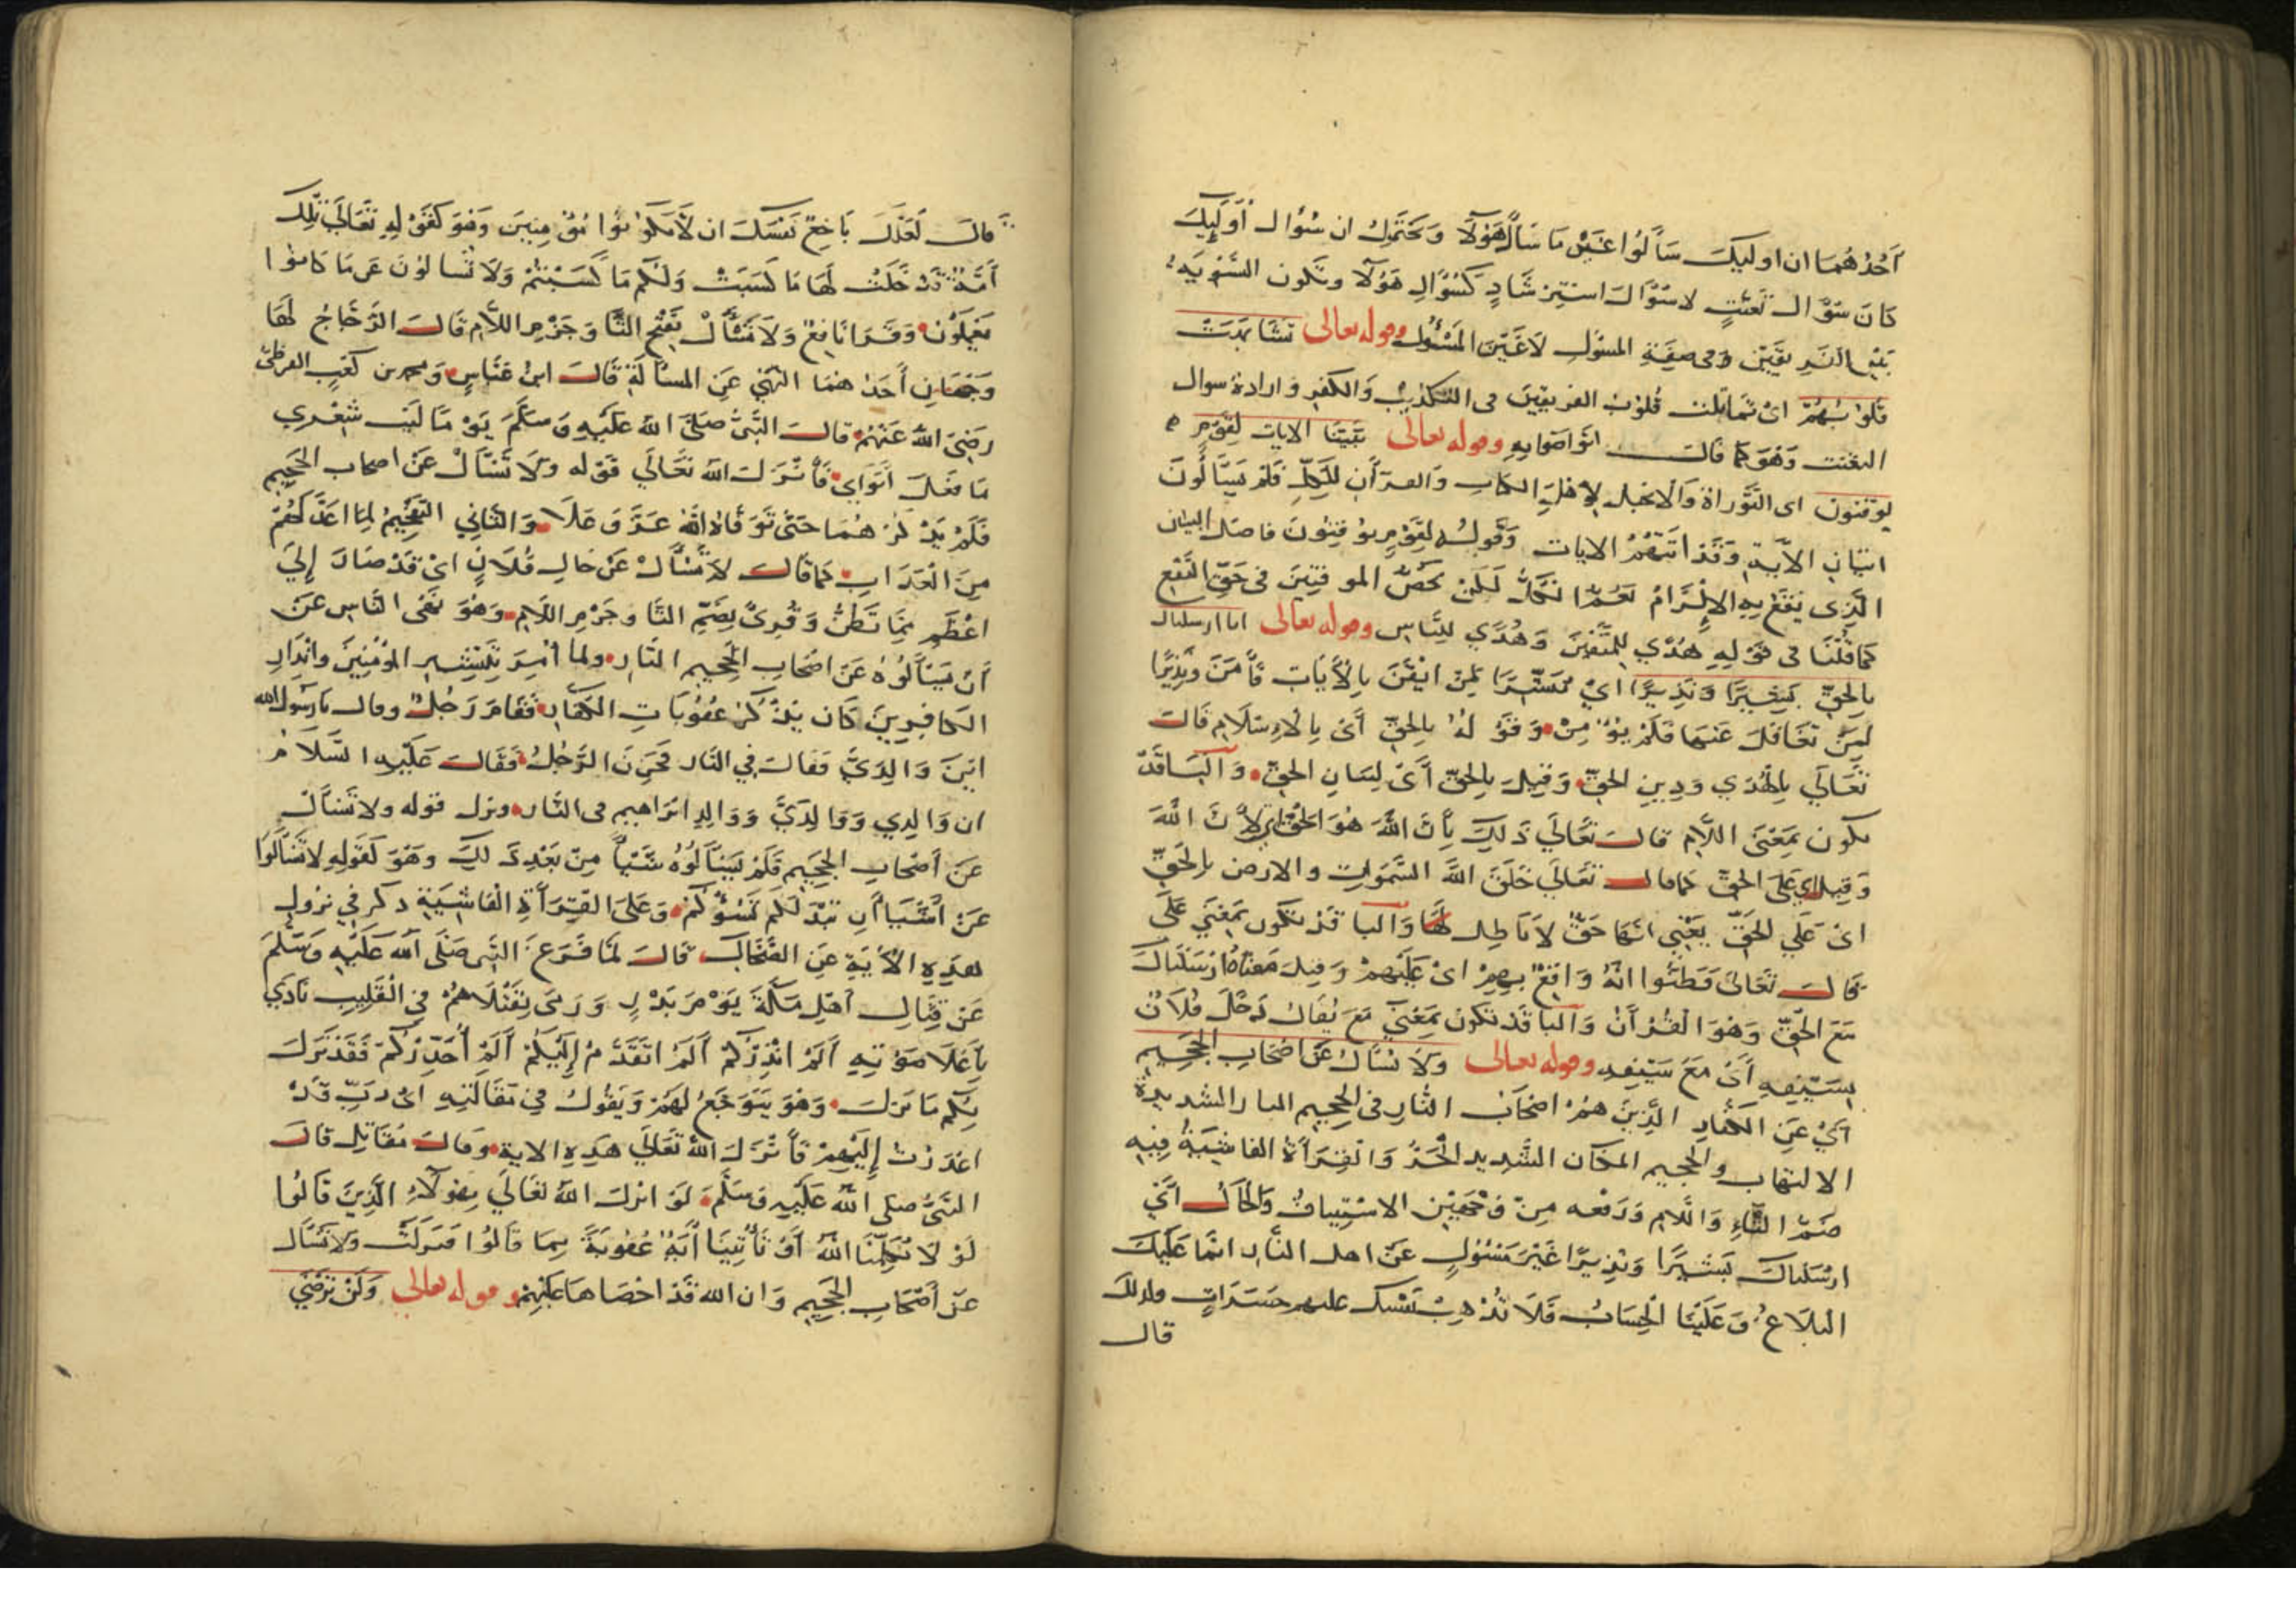 احدهما ان اوليك سالوا غير ما سال هولا ويحتمل ان سوال اوليك
كان سوال تعنت لا سوال استرشاد كسوال هولا وتكون التسوية
بين الفريقين وفي صفة المسول لا غير المسول وقوله تعالى تشابهت
قلوبهم اي تماثلت قلوب الفريقين في التكذيب والكفر وارادة سوال
التعنت وهو كما قال اتواصوا به وقوله تعالى بينا الايات لقوم
يوقنون اي التوراة والانجيل لاهل الكتاب والقرآن للكل فلم يسألون
اتيان الآية وقد اتتهم الايات وقوله لقوم يوقنون فاصل البيان
الذي يقع به الالزام تعم الكل لكن خص الموقنين في حق النفع
كما قلنا في قوله هدى للمتقين وهدى للناس وقوله تعالى انا ارسلناك
بالحق بشيرا ونذيرا اي مبشرا لمن ايقن بالآيات فآمن ونذيرا
لمن تغافل عنها فلم يؤمن وقوله بالحق أي بالاسلام قال
تعالى بالهدى ودين الحق وقيل بالحق أي لبيان الحق والبا قد
يكون بمعنى اللام قال تعالى ذلك بأن الله هو الحق اي لأن الله
وقيل اي على الحق كما قال تعالى خلق الله السموات والارض بالحق
اي على الحق يعني انها حق لا باطل لها والبا قد تكون بمعنى على
كما قال تعالى وظنوا انه واقع بهم اي عليهم وقيل معناه ارسلناك
مع الحق وهو القرآن والبا قد تكون بمعنى مع يقال دخل فلان
بسيفه أي مع سيفه وقوله تعالى ولا تسأل عن اصحاب الجحيم
أي عن الكفار الذين هم اصحاب النار في الجحيم النار الشديدة
الالتهاب والجحيم المكان الشديد الحر والقرآة الفاشية فيه
ضم التاء واللام ورفعه من وجهين الاستيناف والحال أي
ارسلناك بشيرا ونذيرا غير مسئول عن اهل النار انما عليك
البلاغ وعلينا الحساب فلا تذهب نفسك عليهم حسرات ولذلك
قال
قال لعلك باخع نفسك ان لا يكونوا مؤمنين وهو كقوله تعالى تلك
أمة قد خلت لها ما كسبت ولكم ما كسبتم ولا تسالون عن ما كانوا
يعملون وقرا نافع ولا تسأل بفتح التا وجزم اللام قال الزجاج لها
وجهان أحدهما النهي عن المسألة قال ابن عباس ومحمد بن كعب القرظي
رضي الله عنهم قال النبي صلى الله عليه وسلم يوما ليت شعري
ما فعل أبواي فأنزل الله تعالى قوله ولا تسأل عن اصحاب الجحيم
فلم يذكرهما حتى توفاه الله عز وعلا والثاني التفخيم لما اعد لهم
من العذاب كما قال لا تسأل عن حال فلان اي قد صار إلى
اعظم مما تظن وقرئ بضم التا وجزم اللام وهو نهي الناس عن
أن يسألوه عن اصحاب الجحيم النار ولما أمر بتبشير المؤمنين وانذار
الكافرين كان يذكر عقوبات الكفار فقام رجل وقال يا رسول الله
اين والدي فقال في النار فحزن الرجل فقال عليه السلام
ان والدي ووالديّ ووالد ابراهيم في النار ونزل قوله ولا تسأل
عن أصحاب الجحيم فلم يسألوه شيأ من بعد ذلك وهو كقوله لا تسألوا
عن أشيا أن تبد لكم تسؤكم وعلى القرأة الفاشية ذكر في نزول
هذه الأية عن الضحاك قال لما فرغ النبي صلى الله عليه وسلم
عن قتال اهل مكة يوم بدر ورمى بقتلاهم في القليب نادى
بأعلا صوته ألم انذركم ألم اتقدم إليكم ألم أحذركم فقد نزل
بكم ما نزل وهو يتوجع لهم ويقول في مقالته اي رب قد
اعذرت إليهم فأنزل الله تعالى هذه الاية وقال مقاتل قال
النبي صلى الله عليه وسلم لو انزل الله تعالى بهولاء الذين قالوا
لو لا يكلمنا الله أو تأتينا أية عقوبة بما قالوا فنزلت ولا تسأل
عن أصحاب الجحيم وان الله قد احصاها عليهم وقوله تعالى ولن ترضى